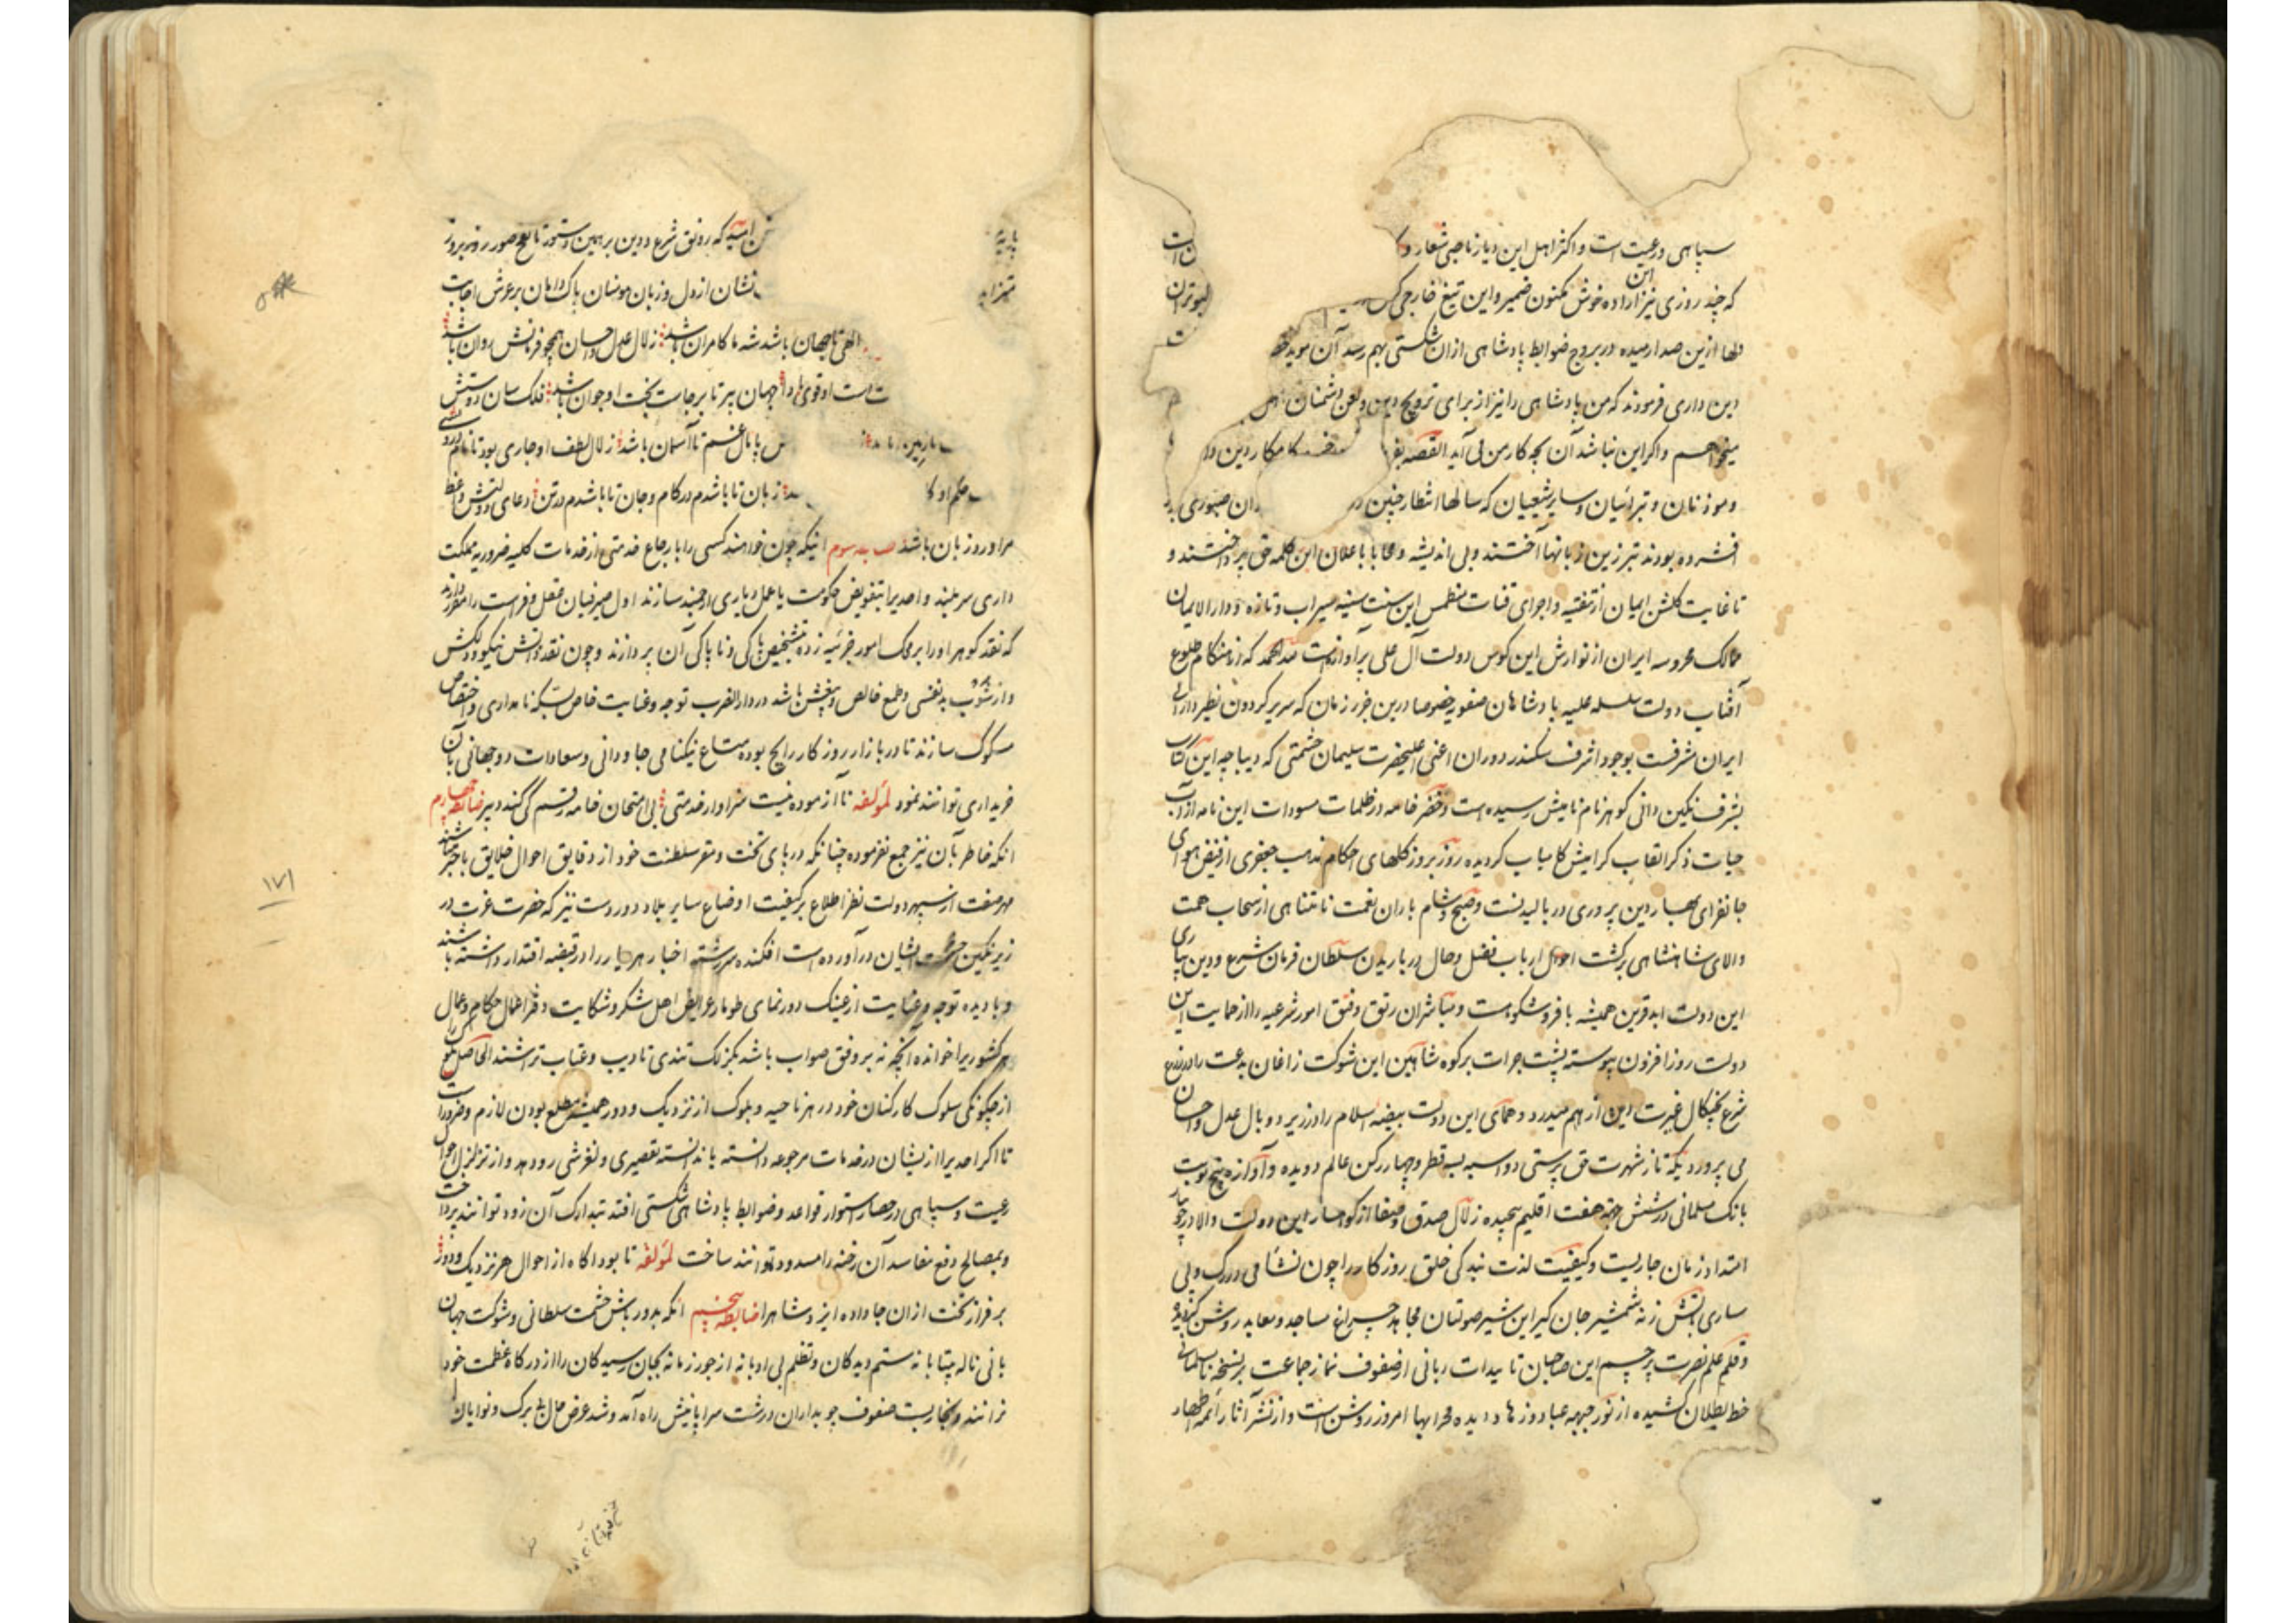 سپاهی و رعیت است و اکثر اهل این دیار ناصبی شعار
که چند روزی نیز اراده خویش مکنون ضمیر و این تیغ خارجی کش
دلها ازین صدا رمیده در بروج ضوابط پادشاهی ازان شکستی بهم رسد آن موید
دین داری فرمودند که من پادشاهی را نیز از برای ترویج دین و لعن دشمنان
میخواهم و اگر این نباشد آن بچه کار من می آید القصه
و موذنان و تبرائیان و سایر شیعیان که سالها انتظار چنین صبوری
افشرده بودند تبرزین زبانها آختند و بی اندیشه و محابا باعلان این کلمه حق پرداختند و
تا غایت گلشن ایمان از تنقیه و اجرای قنات منطمس این سنت سنیه سیراب و تازه و دار الایمان
ممالک محروسه ایران از نوازش این کوس دولت آل علی پر آوازه است لله الحمد که از هنگام طلوع
آفتاب دولت سلسله علیه پادشاهان صفویه خصوصا درین جزو زمان که سریر گردون نظیر دارائی
ایران مشرفست بوجود اشرف سکندر دوران اعنی اعلیحضرت سلیمان حشمتی که دیباچه این کتاب
بشرف نگین دانی گوهر نام نامیش رسیده است و خضر خامه در ظلمات مسودات این نامه از آب
حیات ذکر القاب گرامیش کامیاب گردیده روز بروز گلهای احکام مذهب جعفری از فیض هوای
جانفزای بهار دین پروری در بالیدنست و صبح و شام باران نعمت نامتناهی از سحاب همت
والای شاهنشاهی بر کشت احوال ارباب فضل و حال در باریدن سلطان فرمان شرع و دین بیاری
این دولت ابد قرین همیشه با فر و شکوه است و مباشران رتق و فتق امور شرعیه را از حمایت این
دولت روز افزون پیوسته پشت جرات بر کوه شاهین این شوکت زاغان بدعت را
شرع بچنگال غیرت این از هم میدرد و همای این دولت بیضه اسلام را در زیر دو بال عدل و احسان
می پرورد یکه تاز شهرت حق پرستی دو اسبه بسه قطر و چهار رکن عالم دویده و آوازه پنج نوبت
بانک مسلمانی در شش جهة هفت اقلیم پیچیده زلال صدق و صفا از کوهسار این دولت والا در جویبار
امتداد زمان جاریست و کیفیت لذت بندگی خلق روزگار را چون نشأ می در رگ و پی
ساری آتش زنه شمشیر جان گیر این شیر صولتان مجاهد چراغ مساجد و معابد روشن گردیده
و قلم علم نصرت پرچم این صاحبان تاییدات ربانی از صفوف نماز جماعت بر نسخه نامسلمانی
خط بطلان کشیده از نور جبهه عباد روزها دیده محرابها امروز روشن است و از نشر آثار ائمه اطهار
امید که رونق شرع و دین بر همین دستور تا نفخ صور روز بروز
نشان از دل و زبان مومنان پاک دامان بر عرش اجابت
الهی تا جهان باشد شه ما کامران باشد زلال عدل و احسان همچو فرمانش روان باشد
است او قوی جهان پیر تا برجاست بخت او جوان باشد فلک سان
پامال غم تا آسمان باشد زلال لطف او جاری بود تا
حکم او زبان تا باشدم در کام و جان تا باشدم در تن دعای دولتش واعظ
مرا ورد زبان باشد ضابطه سوم اینکه چون خواهند کسی را بارجاع خدمتی از خدمات کلیه ضروریه مملکت
داری سربلند و احدی را بتفویض حکومت یا عمل دیاری ارجمند سازند اول صیرفیان عقل و فراست را مقرر دارند
که نقد گوهر او را بر محک امور جزئیه زده بتشخیص پاکی و ناپاکی آن پردازند و چون نقد ذاتش نیکو و دلکش
و از شوب بدنفسی و طمع خالص و بیغش باشد در دار الضرب توجه و عنایت خاص بسکه نامداری و اختصاص
مسکوک سازند تا در بازار روزگار رایج بوده متاع نیکنامی جاودانی و سعادات دو جهانی بآن
خریداری توانند نمود لمؤلفه نا آزموده نیست سزاوار خدمتی بی امتحان خامه رقم کی کند دبیر ضابطه چهارم
انکه خاطر بآن نیز جمع نفرموده چنانکه در پای تخت و مقر سلطنت خود از دقایق احوال خلایق با خبر باشند
مهر صفت از سپهر دولت نظر اطلاع بر کیفیت اوضاع سایر بلاد دور دست نیز که حضرت عزت در
زیر نگین حشمت ایشان در آورده است افکنده سررشته اخبار هر دیار را در قبضه اقتدار داشته باشند
و با دیده توجه و عنایت از عینک دورنمای طومار عرایض اهل شکر و شکایت دفتر اعمال حکام و عمال
هر کشوری را خوانده آنچه نه بر وفق صواب باشد بگزلک تندی تادیب و عتاب تراشند الحاصل
از چگونگی سلوک کارکنان خود در هر ناحیه و بلوک از نزدیک و دور همیشه مطلع بودن لازم و ضرور است
تا اگر احدی را از ایشان در خدمات مرجوعه دانسته یا ندانسته تقصیری و لغزشی رو دهد و از تزلزل احوال
رعیت و سپاهی در حصار استوار قواعد و ضوابط پادشاهی شکستی افتد بتدارک آن زود توانند پرداخت
و بمصالح دفع مفاسد آن رخنه را مسدود توانند ساخت لمؤلفه تا بود آگاه از احوال هر نزدیک و دور
بر فراز تخت ازان جا داده ایزد شاه را ضابطه پنجم انکه بدور باش حشمت سلطانی و شوکت جهان
بانی ناله بیتابانه ستم دیدگان و تظلم بی ادبانه از جور زمانه بجان رسیدگان را از درگاه عظمت خود
نرانند و بخاربست صفوف چوبداران درشت سراپا نیش راه آمد و شد عرض حال بی برگ و نوایان
۱۷۱